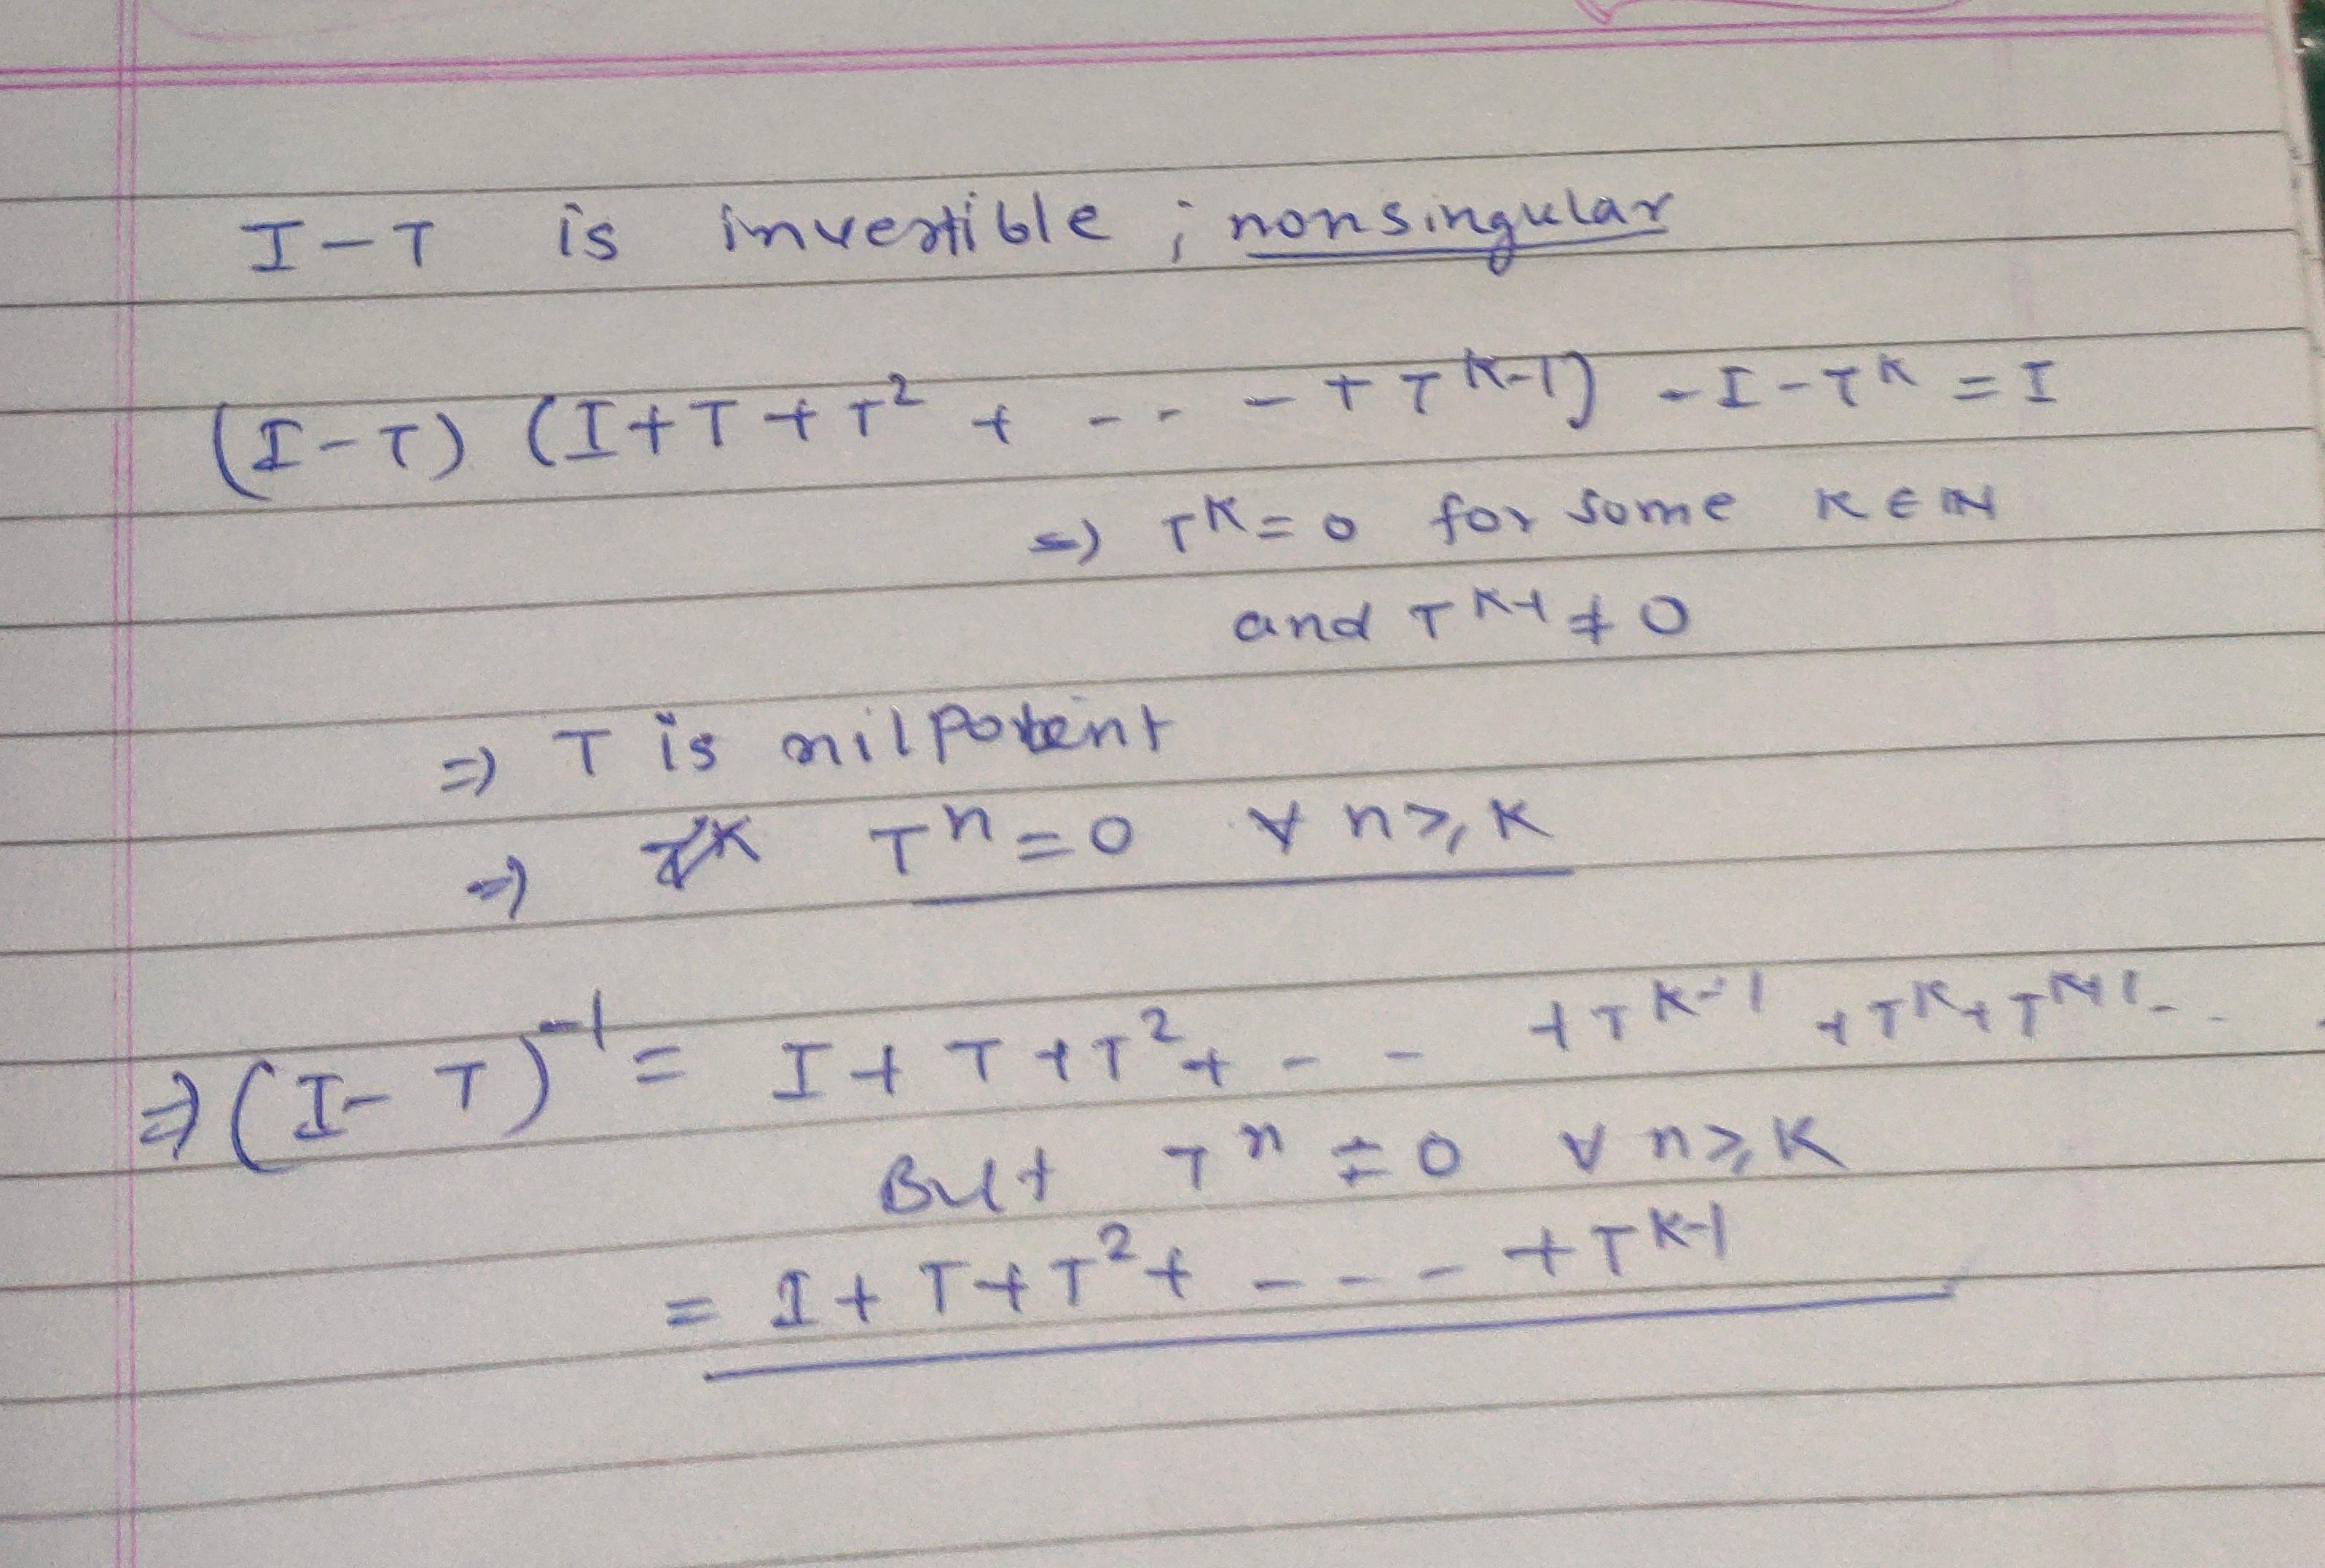 I-T is invertible ; nonsingular
(I-T) (I+T+T² + - - - + T^{K-1}) - I - T^K = I
⇒ T^K = 0 for some K ∈ ℕ
and T^{K-1} ≠ 0
⇒ T is nilpotent
⇒ T^n = 0 ∀ n ≥ K
⇒ (I-T)^{-1} = I + T + T² + - - + T^{K-1} + T^K + T^{K+1} - - .
But T^n = 0 ∀ n ≥ K
= I + T + T² + - - - + T^{K-1}